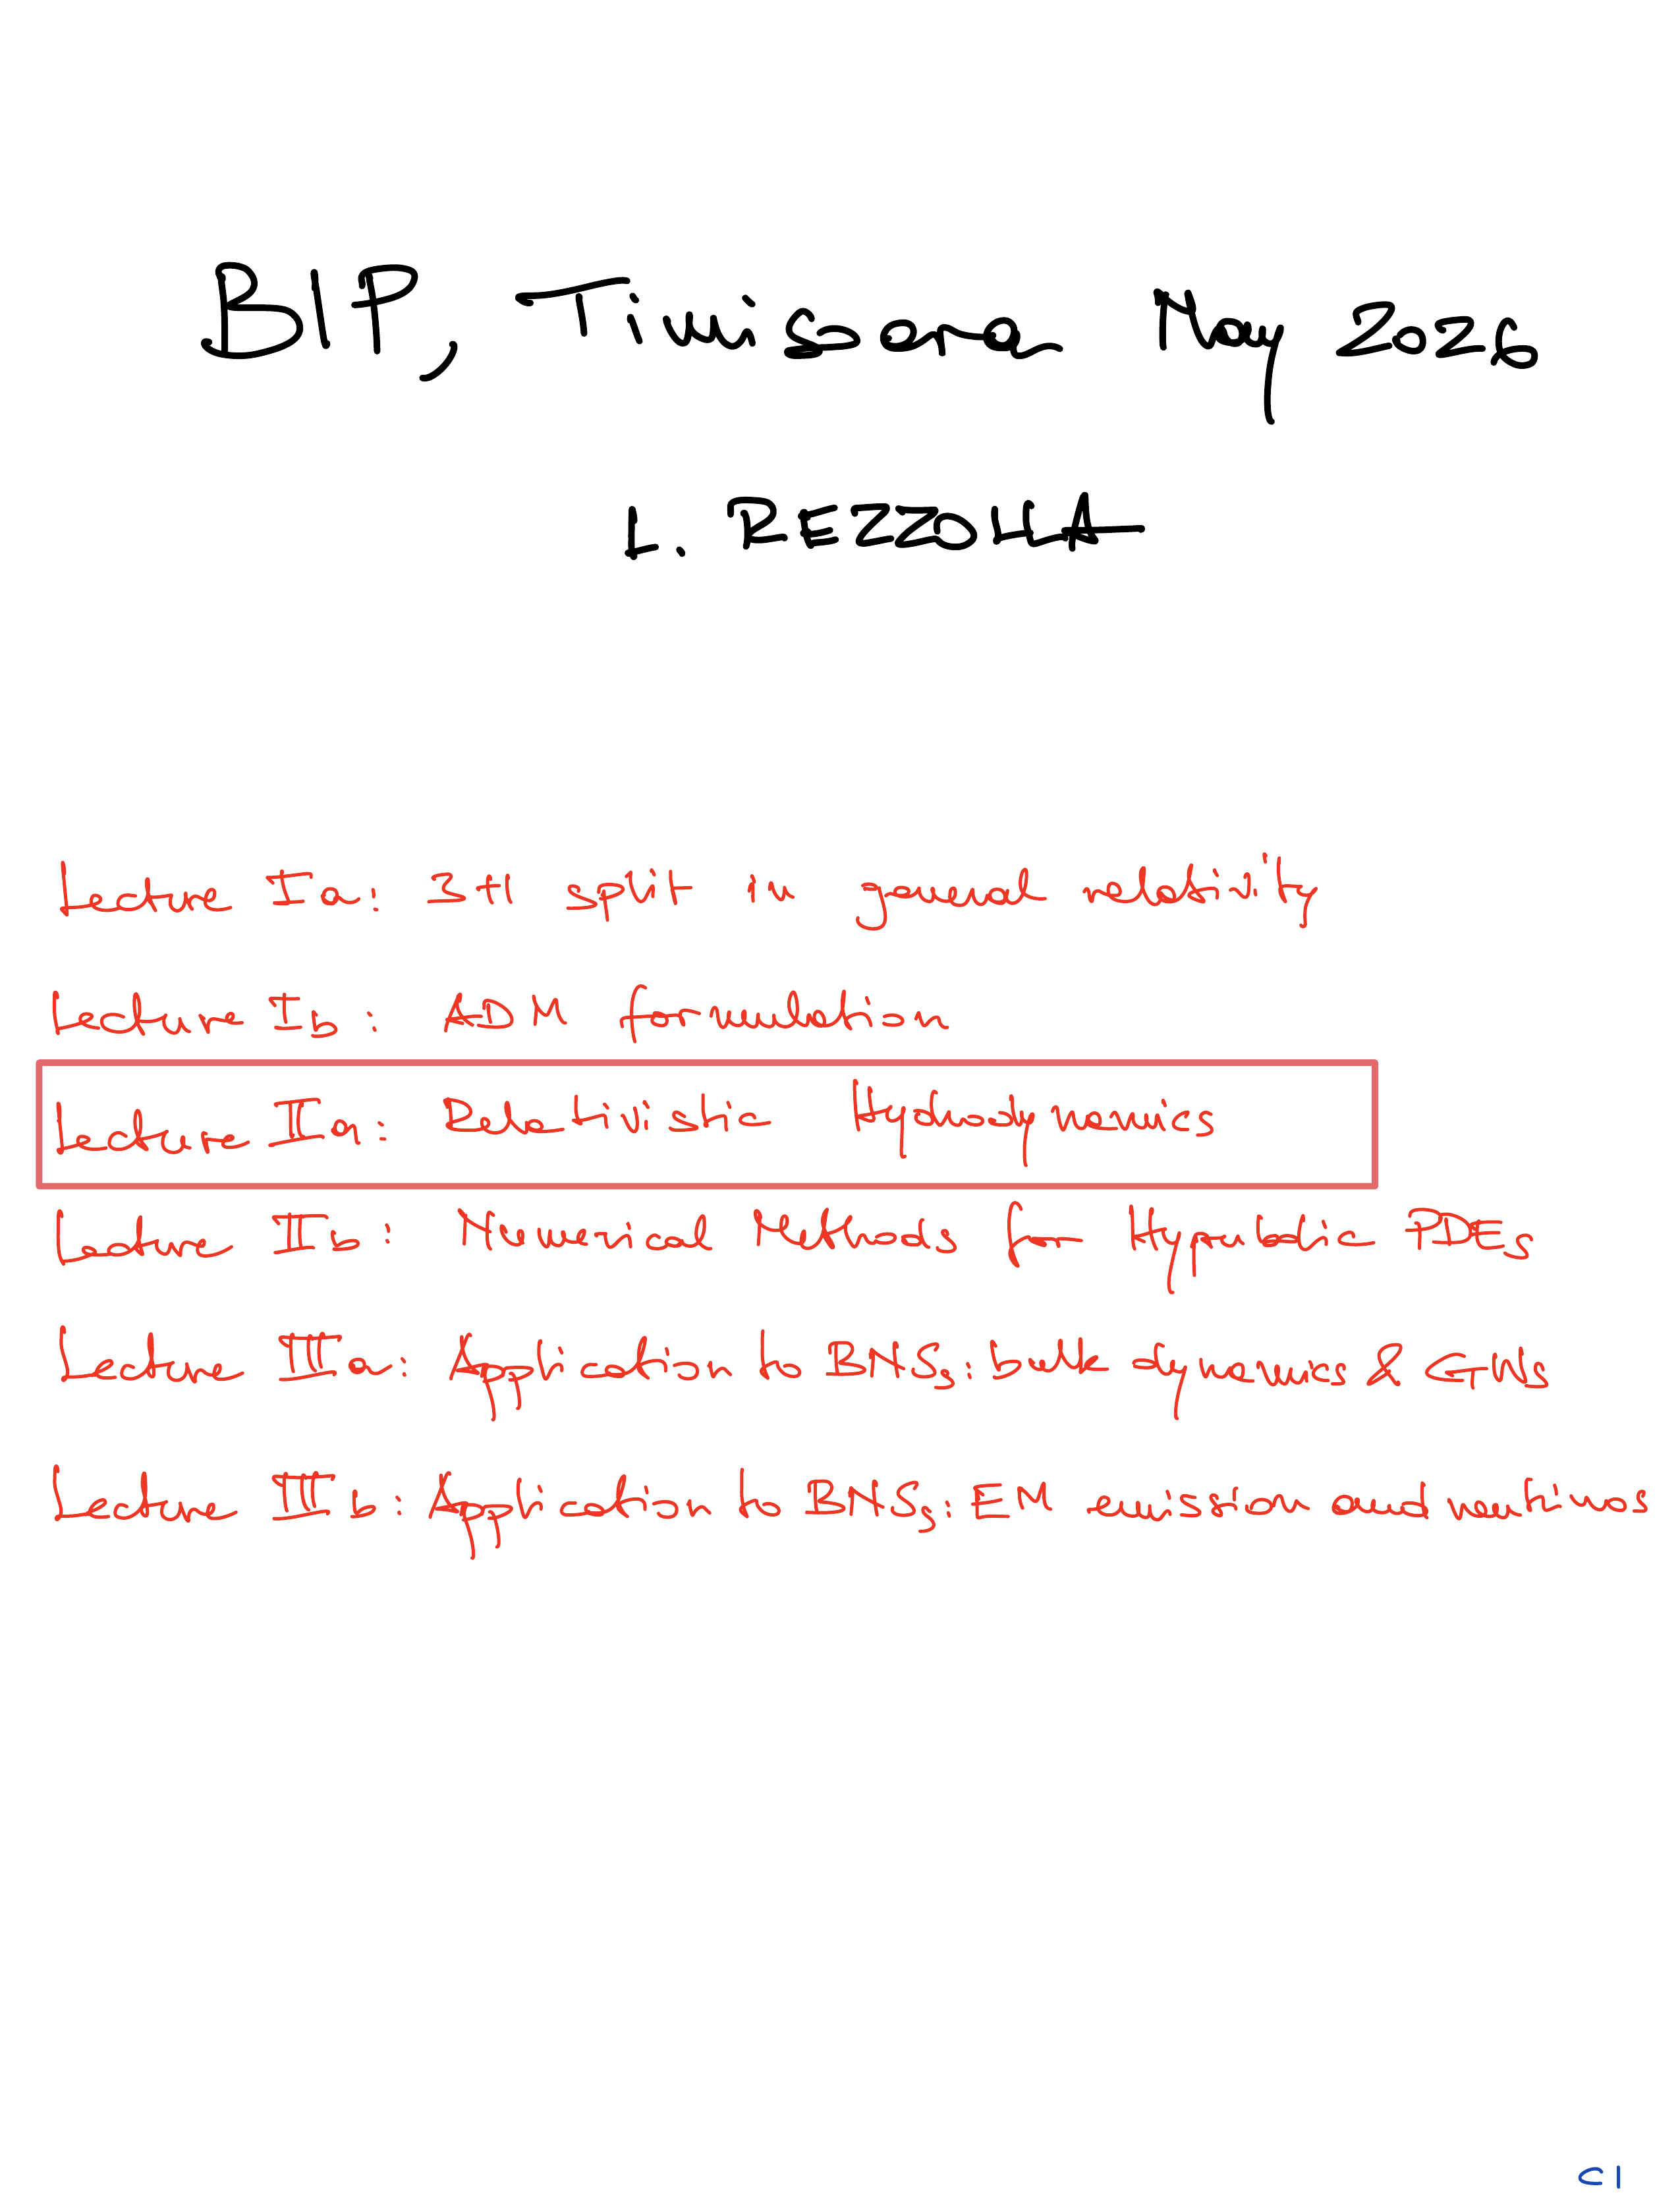 BIP, Timisoara May 2026
L. REZZOLLA
Lecture Ia: 3+1 split in general relativity
Lecture Ib: ADM formulation
Lecture IIa: Relativistic Hydrodynamics
Lecture IIb: Numerical Methods for Hyperbolic PDEs
Lecture IIIa: Application to BNSs: bulk dynamics & GWs
Lecture IIIb: Application to BNSs: EM emission and neutrinos
C1